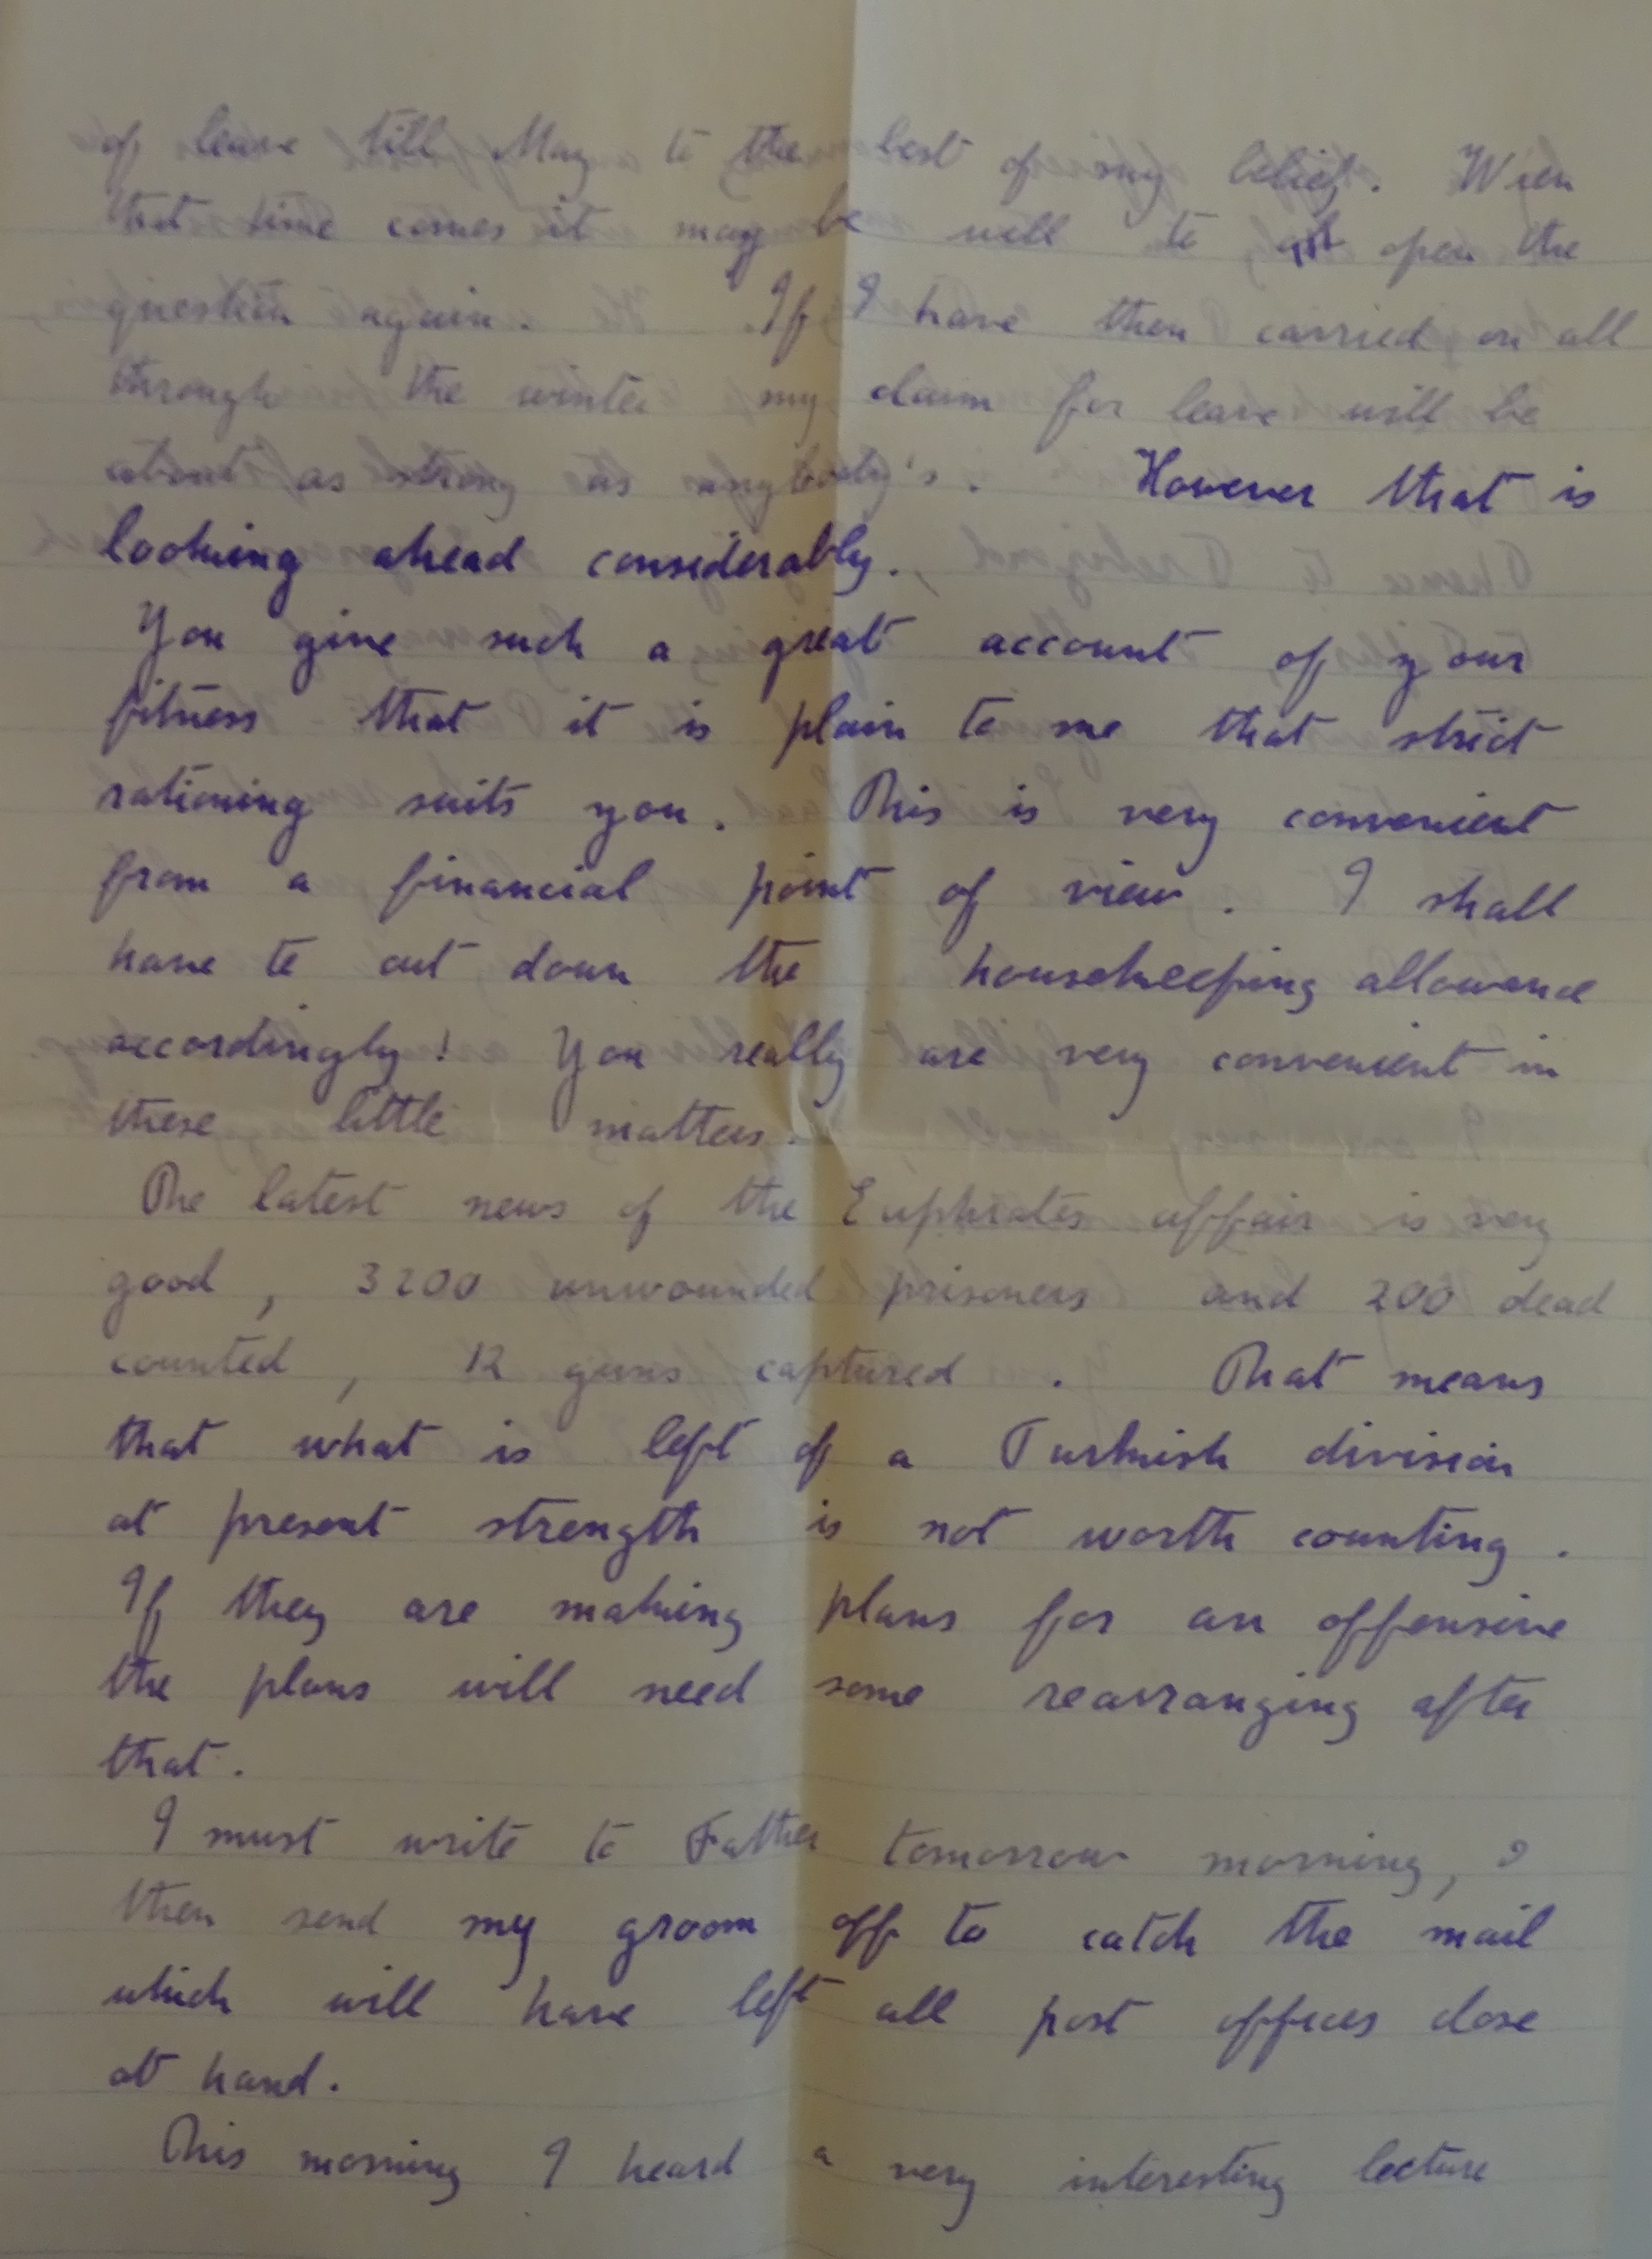 of leave till May to the best of my belief. When
that time comes it may be well to open the
question again. If I have then carried on all
through the winter my claim for leave will be
about as strong as anybody's. However that is
looking ahead considerably.
You give such a great account of your
fitness that it is plain to me that strict
rationing suits you. This is very convenient
from a financial point of view. I shall
have to cut down the housekeeping allowance
accordingly! You really are very convenient in
these little matters.
The latest news of the Euphrates affair is very
good, 3200 unwounded prisoners and 200 dead
counted, 12 guns captured. That means
that what is left of a Turkish division
at present strength is not worth counting.
If they are making plans for an offensive
the plans will need some rearranging after
that.
I must write to Father tomorrow morning, &
then send my groom off to catch the mail
which will have left all post offices close
at hand.
This morning I heard a very interesting lecture